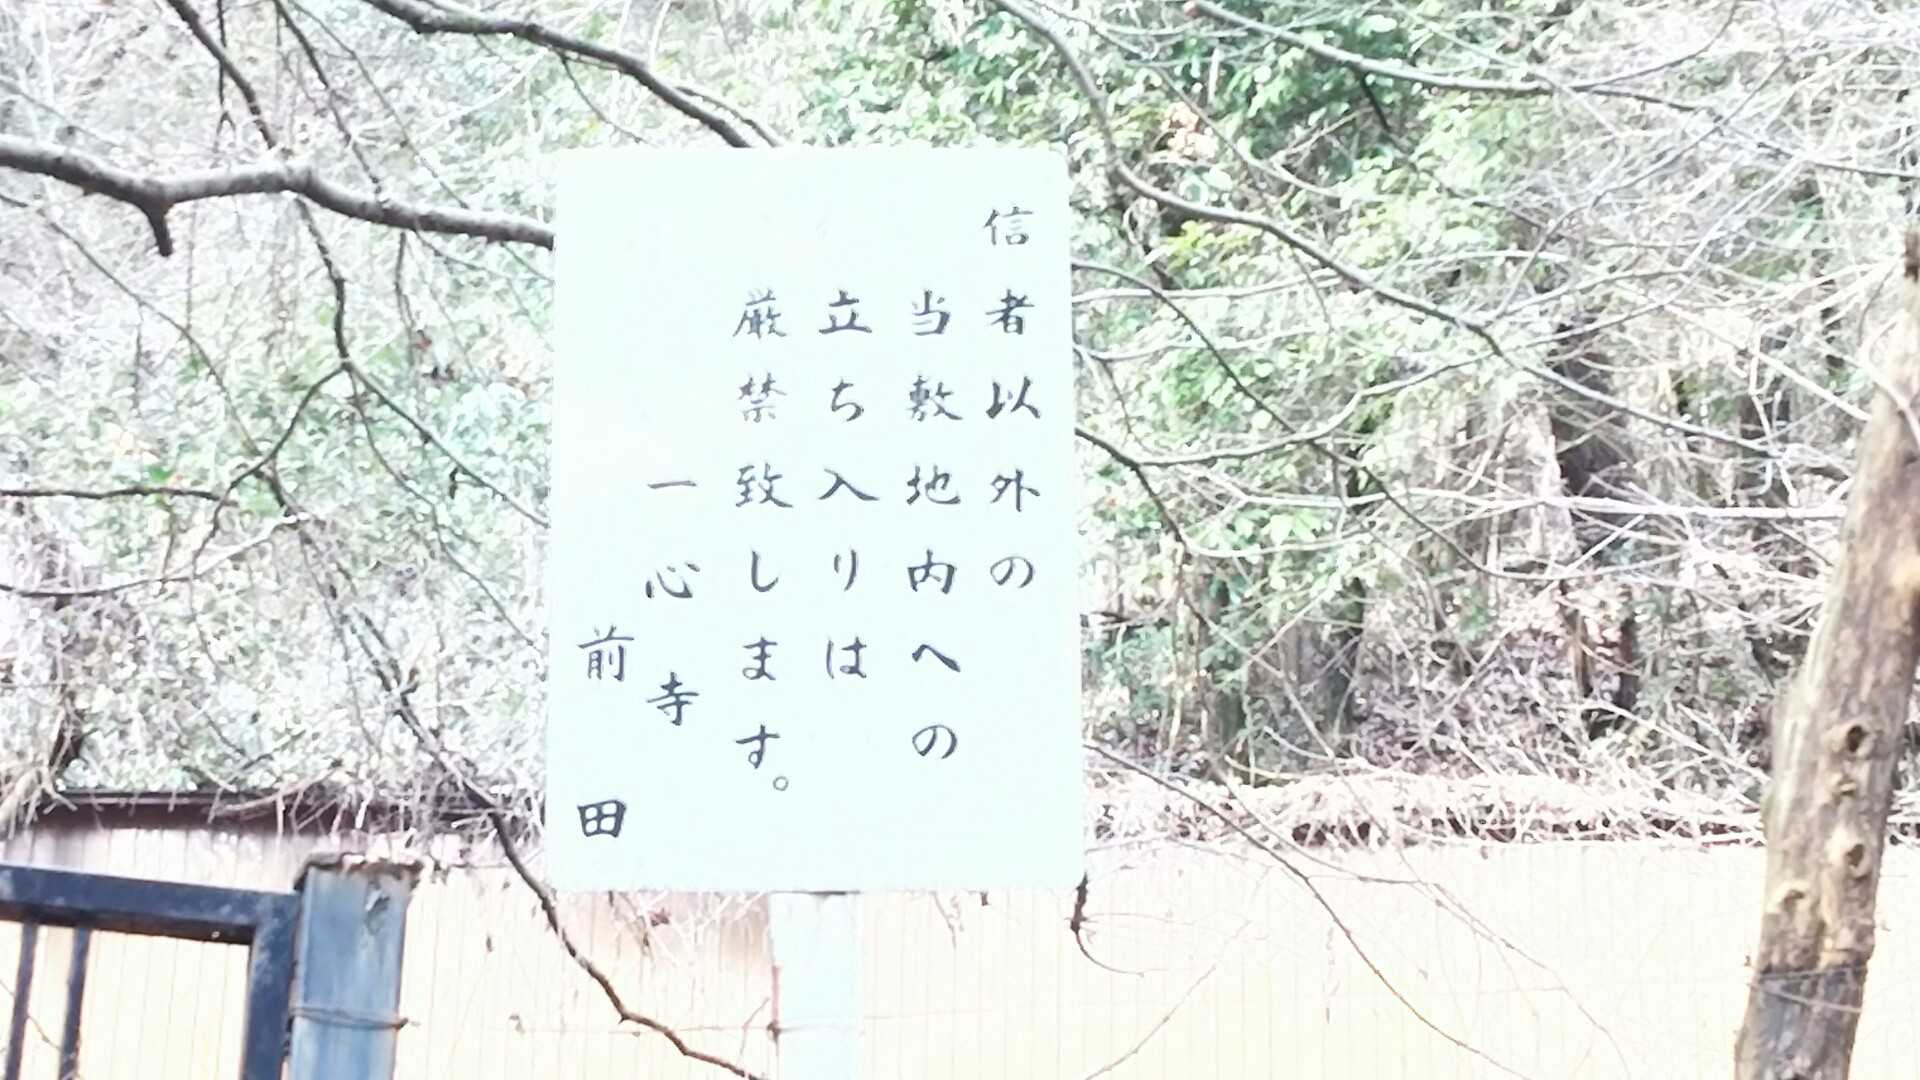 信者以外の
当敷地内への
立ち入りは
厳禁致します。
一心寺
前田